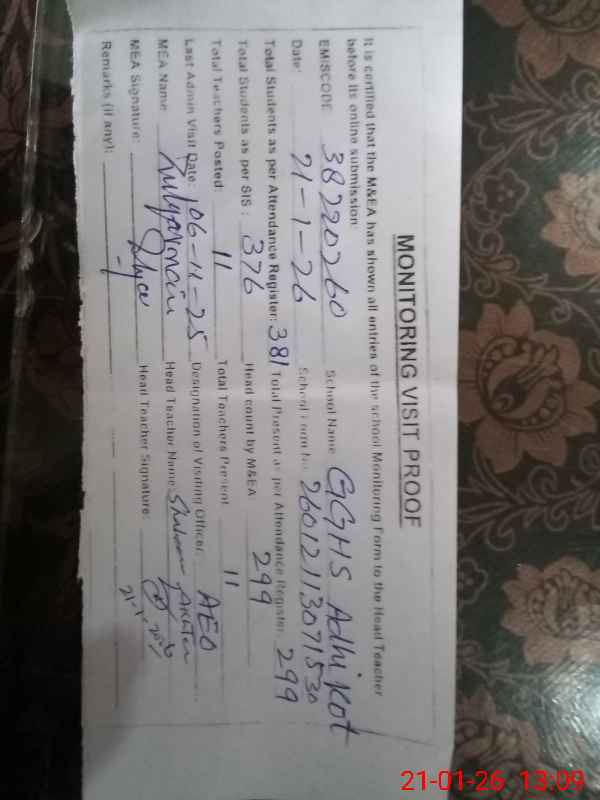 MONITORING VISIT PROOF
It is certified that the M&EA has shown all entries of the school Monitoring Form to the Head Teacher
before its online submission:
EMISCODE 38220260 School Name GGHS Adhi Kot
Date: 21-1-26 School Form No. 26012113071530
Total Students as per Attendance Register: 381 Total Present as per Attendance Register: 299
Total Students as per SIS: 376 Head count by M&EA 299
Total Teachers Posted: 11 Total Teachers Present 11
Last Admin Visit Date: 06-11-25 Designation of Visiting Officer: AEO
MEA Name Head Teacher Name Akhtar
MEA Signature: Head Teacher Signature:
Remarks (if any):
21-01-26 13:09